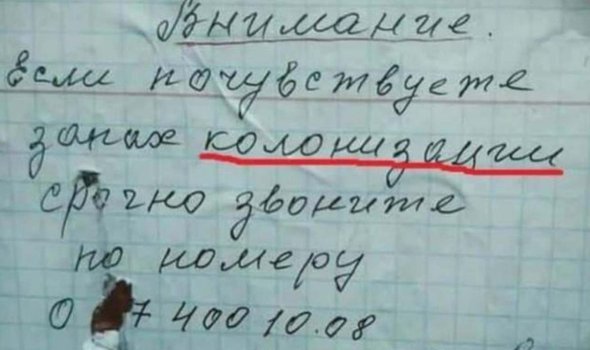 Внимание.
Если почувствуете
запах колонизации
срочно звоните
по номеру
0 7 400 10.08